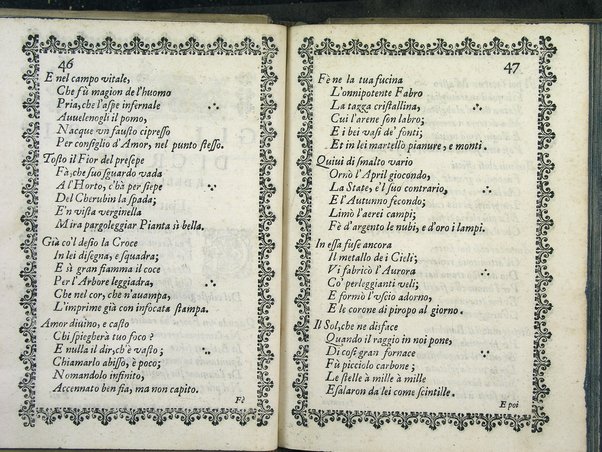 46
E nel campo vitale,
Che fù magion de l'huomo
Pria, che l'aspe infernale
Auuelenogli il pomo,
Nacque vn fausto cipresso
Per consiglio d'Amor, nel punto stesso.
Tosto il Fior del presepe
Fà, che suo sguardo vada
A l'Horto, c'hà per siepe
Del Cherubin la spada;
E'n vista verginella
Mira pargoleggiar Pianta sì bella.
Già co'l desio la Croce
In lei disegna, e squadra;
E sì gran fiamma il coce
Per l'Arbore leggiadra,
Che nel cor, che n'auampa,
L'imprime già con infocata stampa.
Amor diuino, e casto
Chi spiegherà tuo foco?
E nulla il dir, ch'è vasto;
Chiamarlo abisso, è poco;
Nomandolo infinito,
Accennato ben sia, ma non capito.
Fè
47
Fè ne la tua fucina
L'onnipotente Fabro
La tazza cristallina,
Cui l'arene son labro;
E i bei vasi de' fonti;
Et in lei martellò pianure, e monti.
Quiui di smalto vario
Ornò l'April giocondo,
La State, e'l suo contrario,
E l'Autunno fecondo;
Limò l'aerei campi;
Fè d'argento le nubi, e d'oro i lampi.
In essa fuse ancora
Il metallo de i Cieli;
Vi fabricò l'Aurora
Co' perleggianti veli;
E formò l'vscio adorno,
E le corone di piropo al giorno.
Il Sol, che ne disface
Quando il raggio in noi pone,
Di così gran fornace
Fù picciolo carbone;
Le stelle à mille à mille
Esalaron da lei come scintille.
E poi